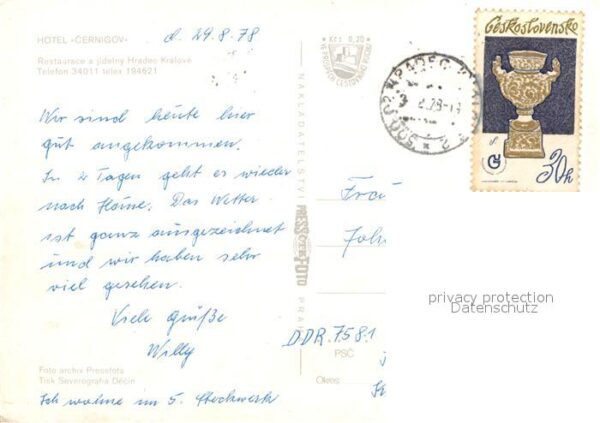 HOTEL »ČERNIGOV«
Restaurace a jídelny Hradec Králové
Telefon 34011 telex 194621
d. 29.8.78
Wir sind heute hier
gut angekommen.
In 2 Tagen geht es wieder
nach Hause. Das Wetter
ist ganz ausgezeichnet
und wir haben sehr
viel gesehen.
Viele Grüße
Willy
Foto archiv Pressfoto
Tisk Severografia Děčín
Ich wohne im 5. Stockwerk
NAKLADATELSTVÍ
PRESSFOTO
Kčs 0,20
Československo
30h
HRADEC
Frau
Joh
DDR 7581
PSČ
Okres
privacy protection
Datenschutz